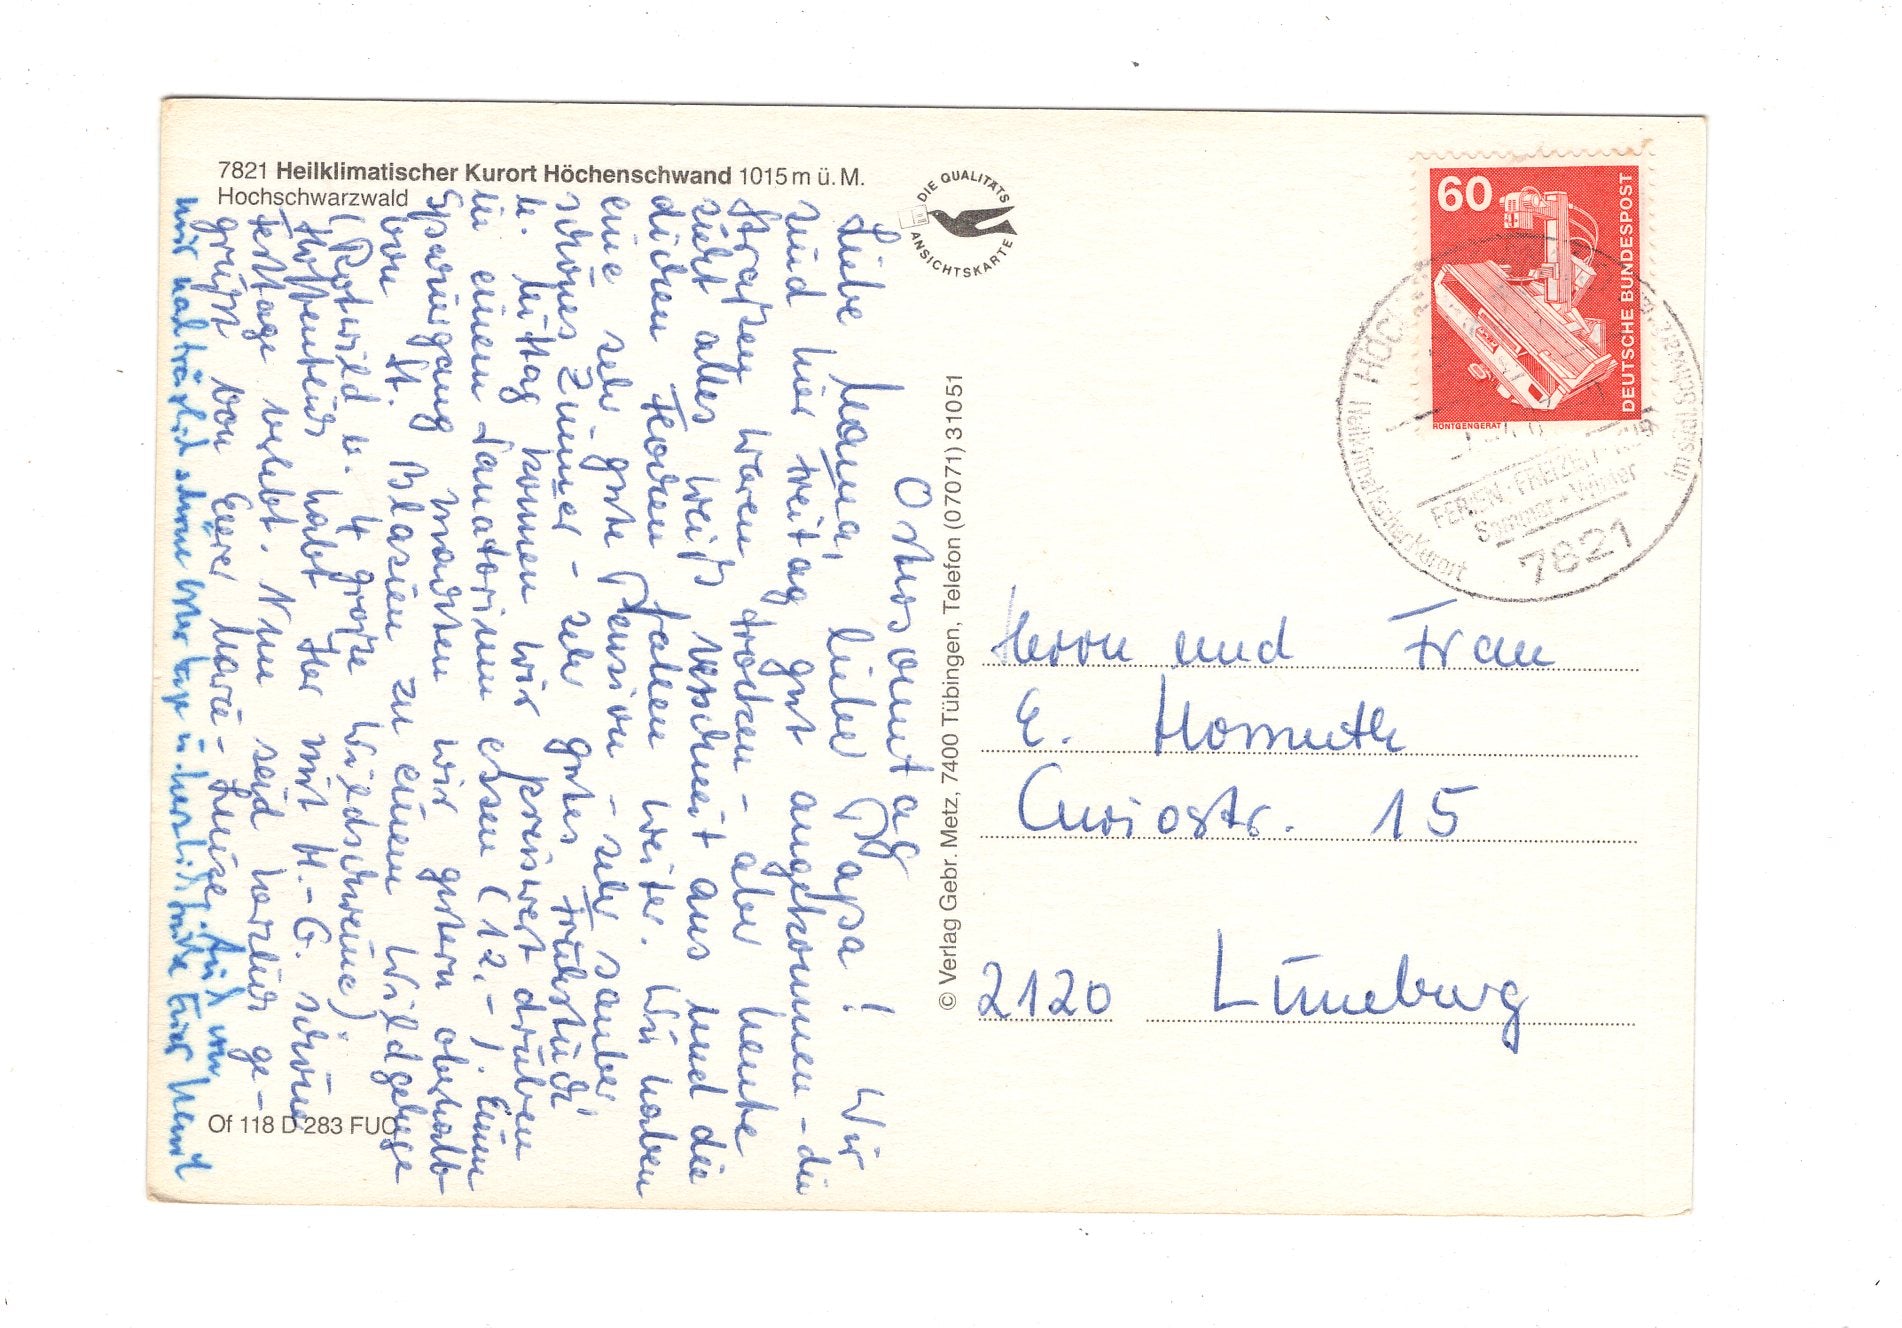 7821 Heilklimatischer Kurort Höchenschwand 1015 m ü. M.
Hochschwarzwald
DIE QUALITÄTS
ANSICHTSKARTE
60
DEUTSCHE BUNDESPOST
RÖNTGENGERÄT
Heilklimatischer Kurort
FERIEN · FREIZEIT
Sommer + Winter
7821
Ostersonntag
Liebe Mama, lieber Papa! Wir
sind hier Freitag gut angekommen - die
Straßen waren trocken - aber heute
sieht alles weiß verschneit aus und die
dicken Flocken fallen weiter. Wir haben
eine sehr gute Pension - sehr sauber
schönes Zimmer - sehr gutes Frühstück
u. Mittag können wir preiswert drüben
in einem Sanatorium essen (12.-). Einen
Spaziergang machten wir gestern oberhalb
von St. Blasien zu einem Wildgehege
(Rotwild u. 4 große Wildschweine)
Hoffentlich habt Ihr mit H.-G. schöne
Festtage verlebt. Nun seid herzlich ge-
grüßt von Eurer Marie-Luise. Auch von
mir nachträglich schöne Ostertage u. herzliche Grüße Euer
© Verlag Gebr. Metz, 7400 Tübingen, Telefon (07071) 31051
Herrn und Frau
E. Homuth
Curiostr. 15
2120 Lüneburg
Of 118 D 283 FUC